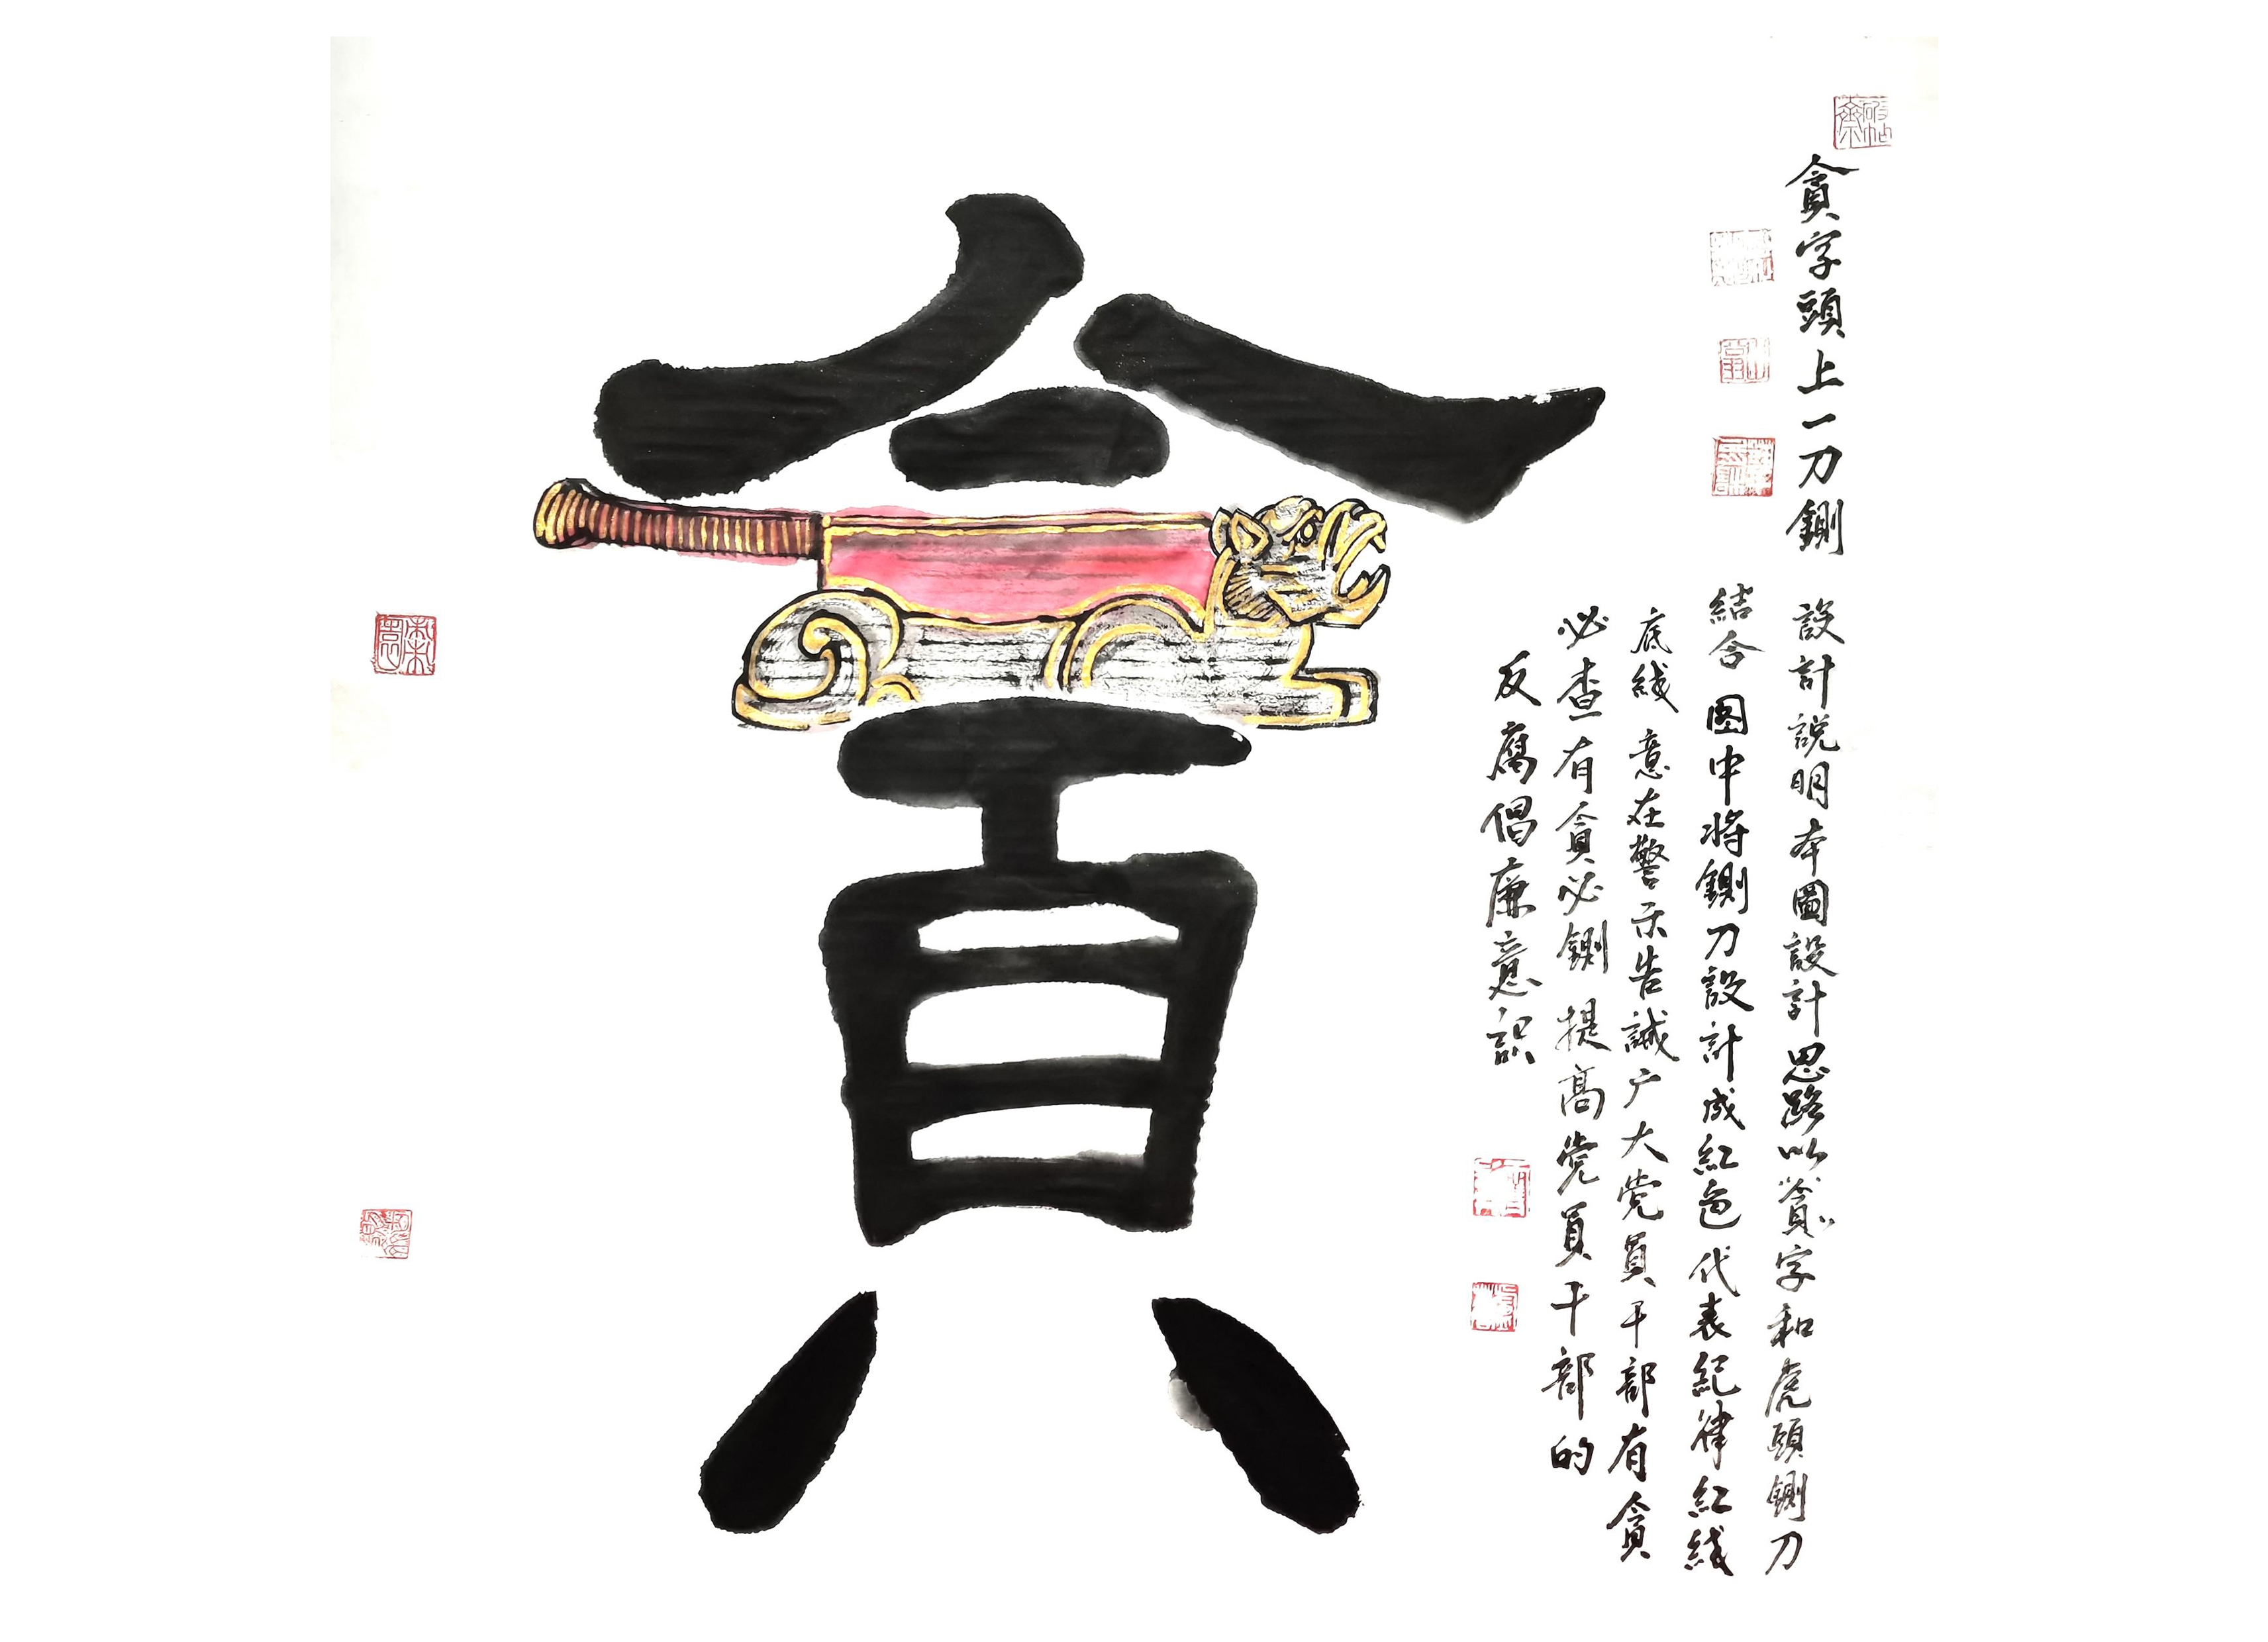 貪
貪字頭上一刀鍘
設計説明本圖設計思路以“貪”字和虎頭鍘刀
結合图中将鍘刀設計成紅色代表紀律紅线
底线意在警示告誡广大党員干部有貪
必查有貪必鍘提高党員干部的
反腐倡廉意識